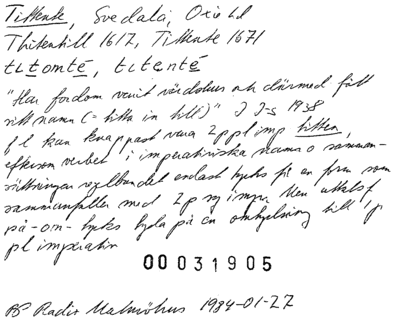 Tittente, Svedala, Oxie hd
Thitentill 1617, Tittente 1671
titomté, titenté
"Har fordom varit värdshus och därmed fått
sitt namn (= titta in till)" J J-s 1938
f l kan knappast vara 2 p pl imp titten,
eftersom verbet i imperativiska namn o samman-
sättningar välbundet endast tycks få en form som
sammanfaller med 2 p sg imper. Men uttalsf
på -om- tycks tyda på en ombyggning till 1 p
pl imperativ
00031905
BP Radio Malmöhus 1984-01-27